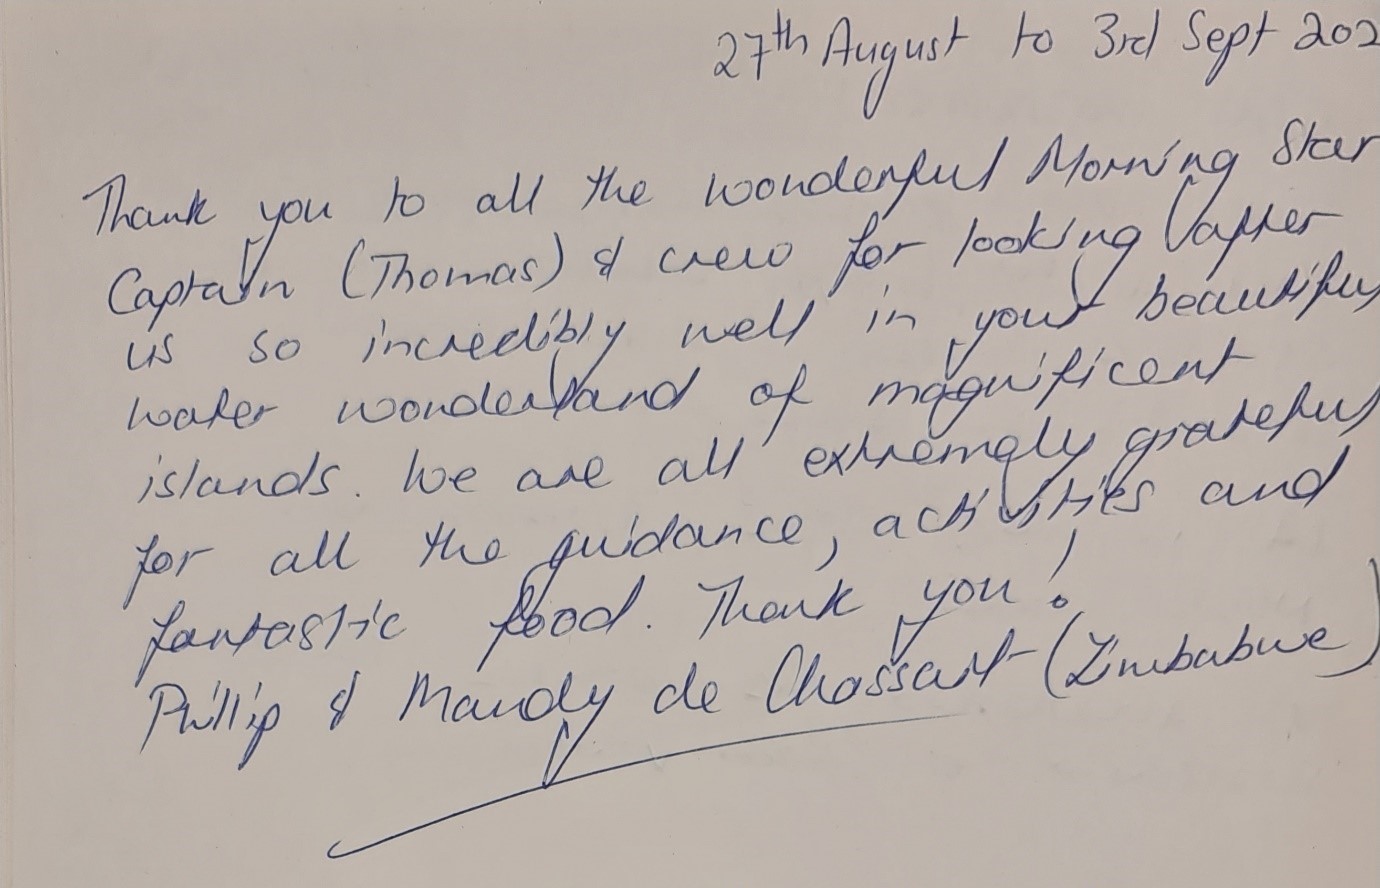 27th August to 3rd Sept 202
Thank you to all the wonderful Morning Star
Captain (Thomas) & crew for looking after
us so incredibly well in your beautiful
water wonderland of magnificent
islands. We are all extremely grateful
for all the guidance, activities and
fantastic food. Thank you!
Phillip & Mandy de Chassart (Zimbabwe)